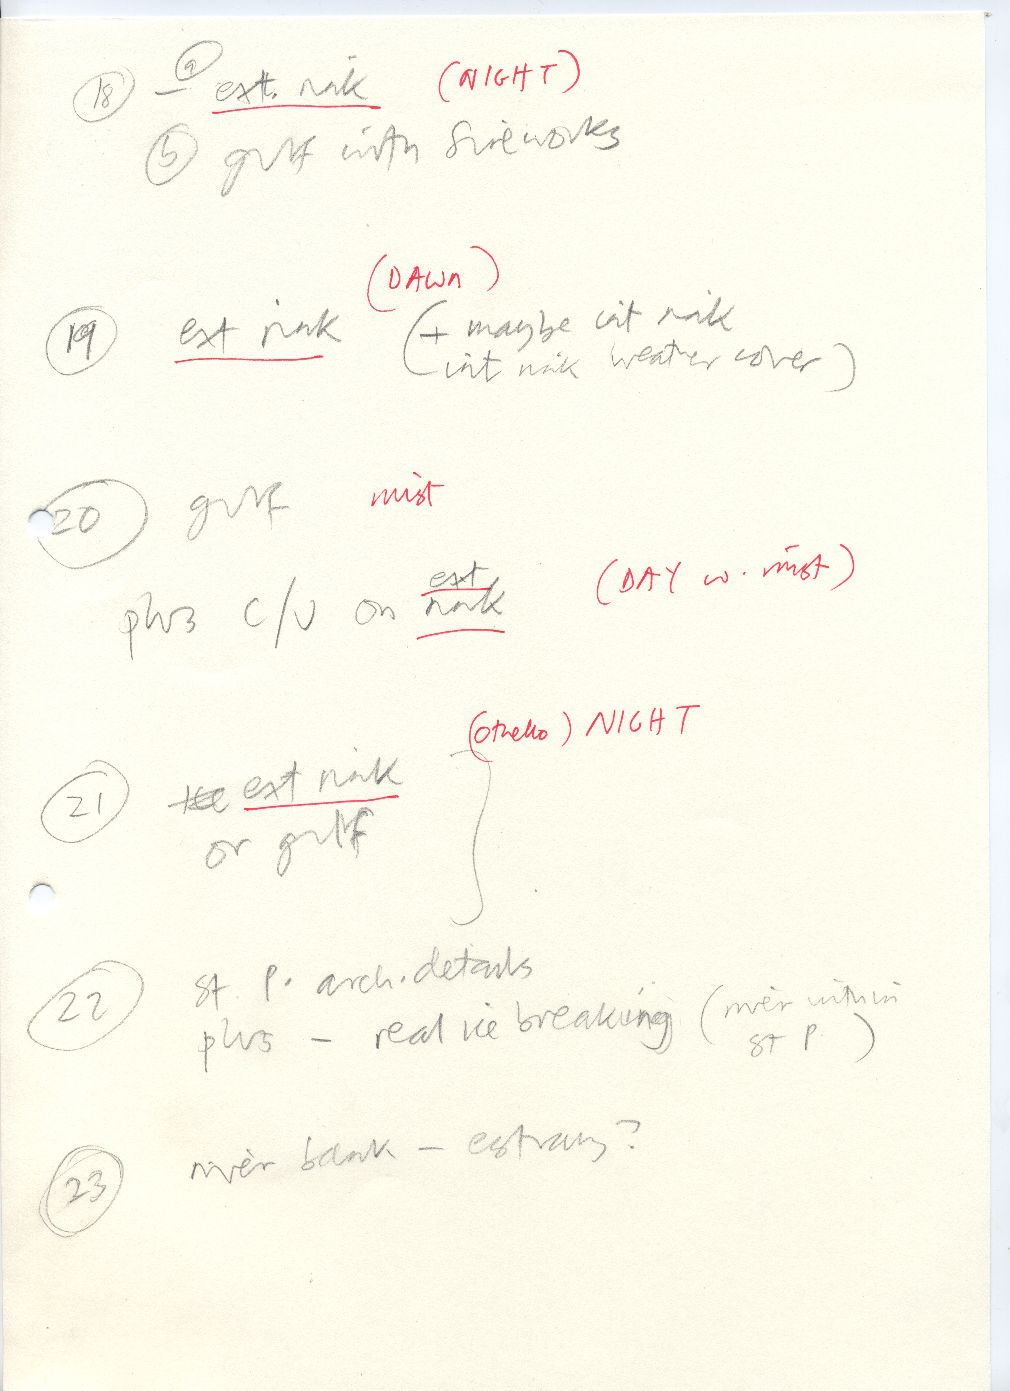 18 – a ext. rink (NIGHT)
b gulf with fireworks
(DAWN)
19 ext rink (+ maybe int rink
int rink weather cover)
20 gulf mist
ext
plus C/U on rink (DAY w. mist)
(Othello) NIGHT
21 ext rink
or gulf
22 St P. arch. details
plus – real ice breaking (river within
St P.)
23 river bank – estuary?